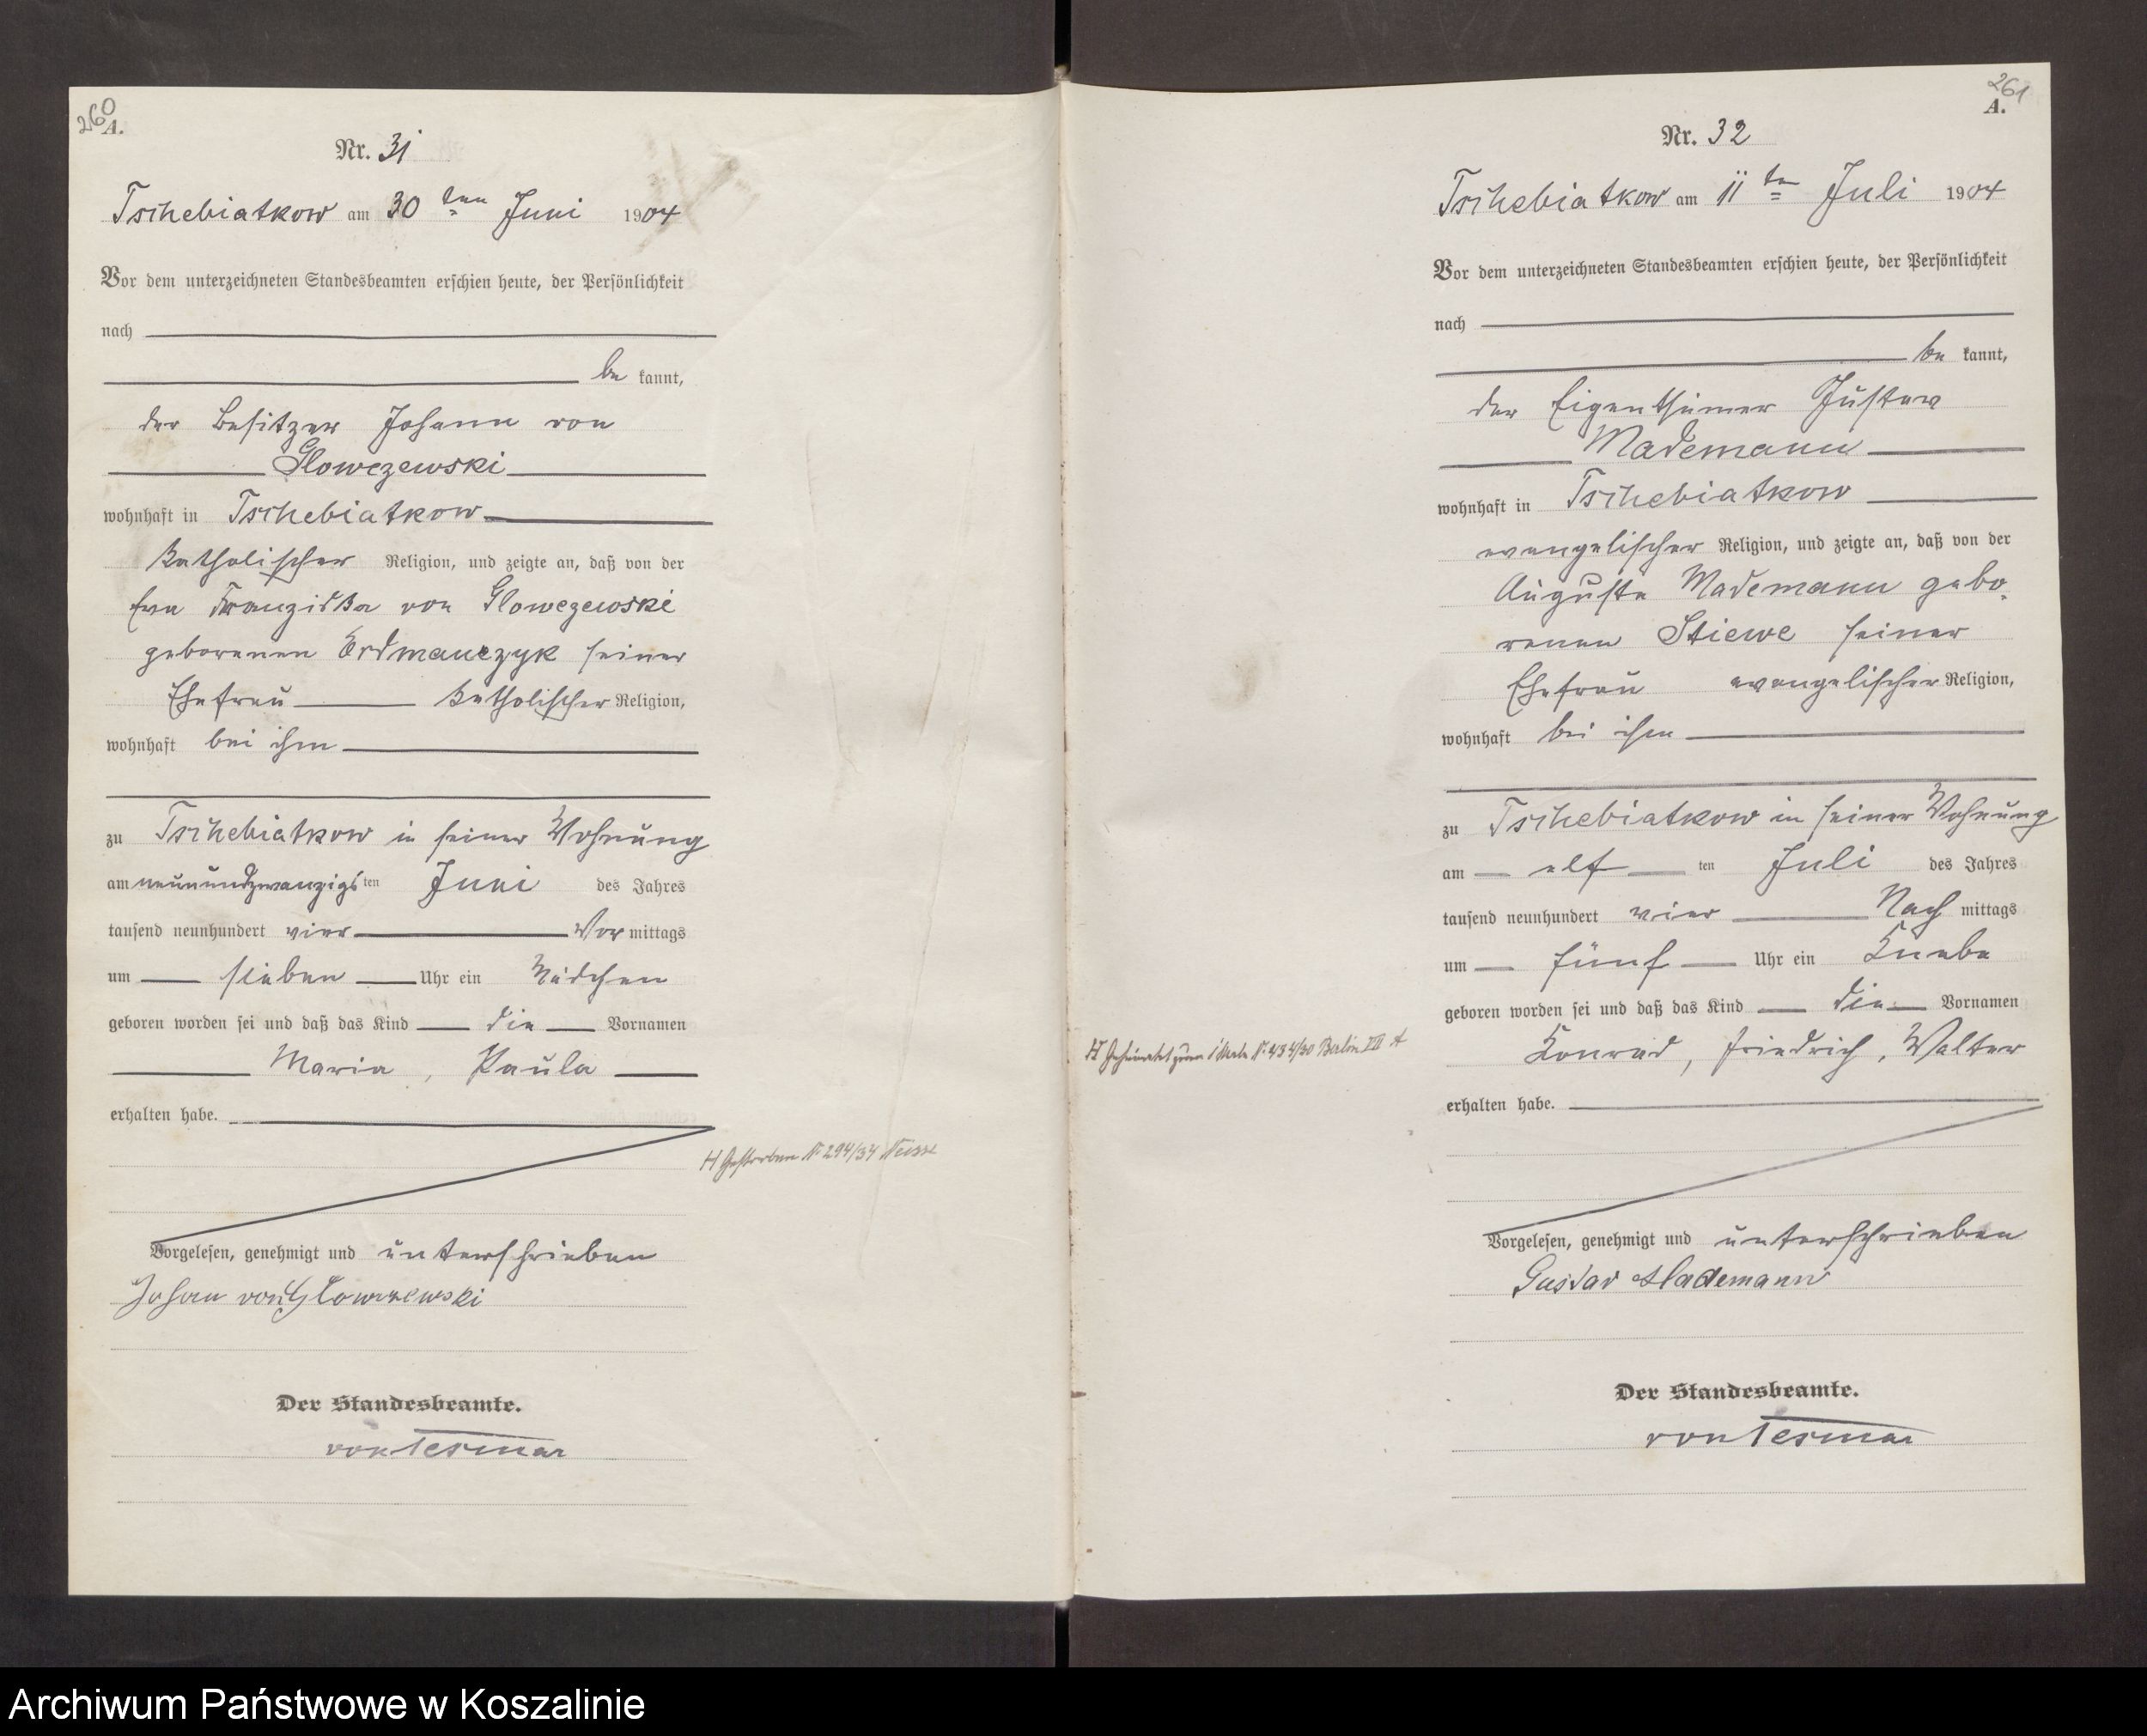 260
A.
Nr. 31
Tschebiatkow am 30 ten Juni 1904
Vor dem unterzeichneten Standesbeamten erschien heute, der Persönlichkeit
nach
be kannt,
der Besitzer Johann von
Glowczewski
wohnhaft in Tschebiatkow
katholischer Religion, und zeigte an, daß von der
Eva Franziska von Glowczewski
geborenen Erdmanczyk seiner
Ehefrau katholischer Religion,
wohnhaft bei ihm
zu Tschebiatkow in seiner Wohnung
am neunundzwanzigsten Juni des Jahres
tausend neunhundert vier Vor mittags
um sieben Uhr ein Mädchen
geboren worden sei und daß das Kind die Vornamen
Maria, Paula
erhalten habe.
H Gestorben Nr 294/34 Neisse
Vorgelesen, genehmigt und unterschrieben
Johan von Glowczewski
Der Standesbeamte.
von Tesmar
261
A.
Nr. 32
Tschebiatkow am 11 ten Juli 1904
Vor dem unterzeichneten Standesbeamten erschien heute, der Persönlichkeit
nach
be kannt,
der Eigenthümer Gustav
Mademann
wohnhaft in Tschebiatkow
evangelischer Religion, und zeigte an, daß von der
Auguste Mademann gebo-
renen Stiewe seiner
Ehefrau evangelischer Religion,
wohnhaft bei ihm
zu Tschebiatkow in seiner Wohnung
am elf ten Juli des Jahres
tausend neunhundert vier Nach mittags
um fünf Uhr ein Knabe
geboren worden sei und daß das Kind die Vornamen
Konrad, Friedrich, Walter
H Geheiratet zum 1 Male Nr 434/30 Berlin XII A
erhalten habe.
Vorgelesen, genehmigt und unterschrieben
Gustav Mademann
Der Standesbeamte.
von Tesmar
Archiwum Państwowe w Koszalinie